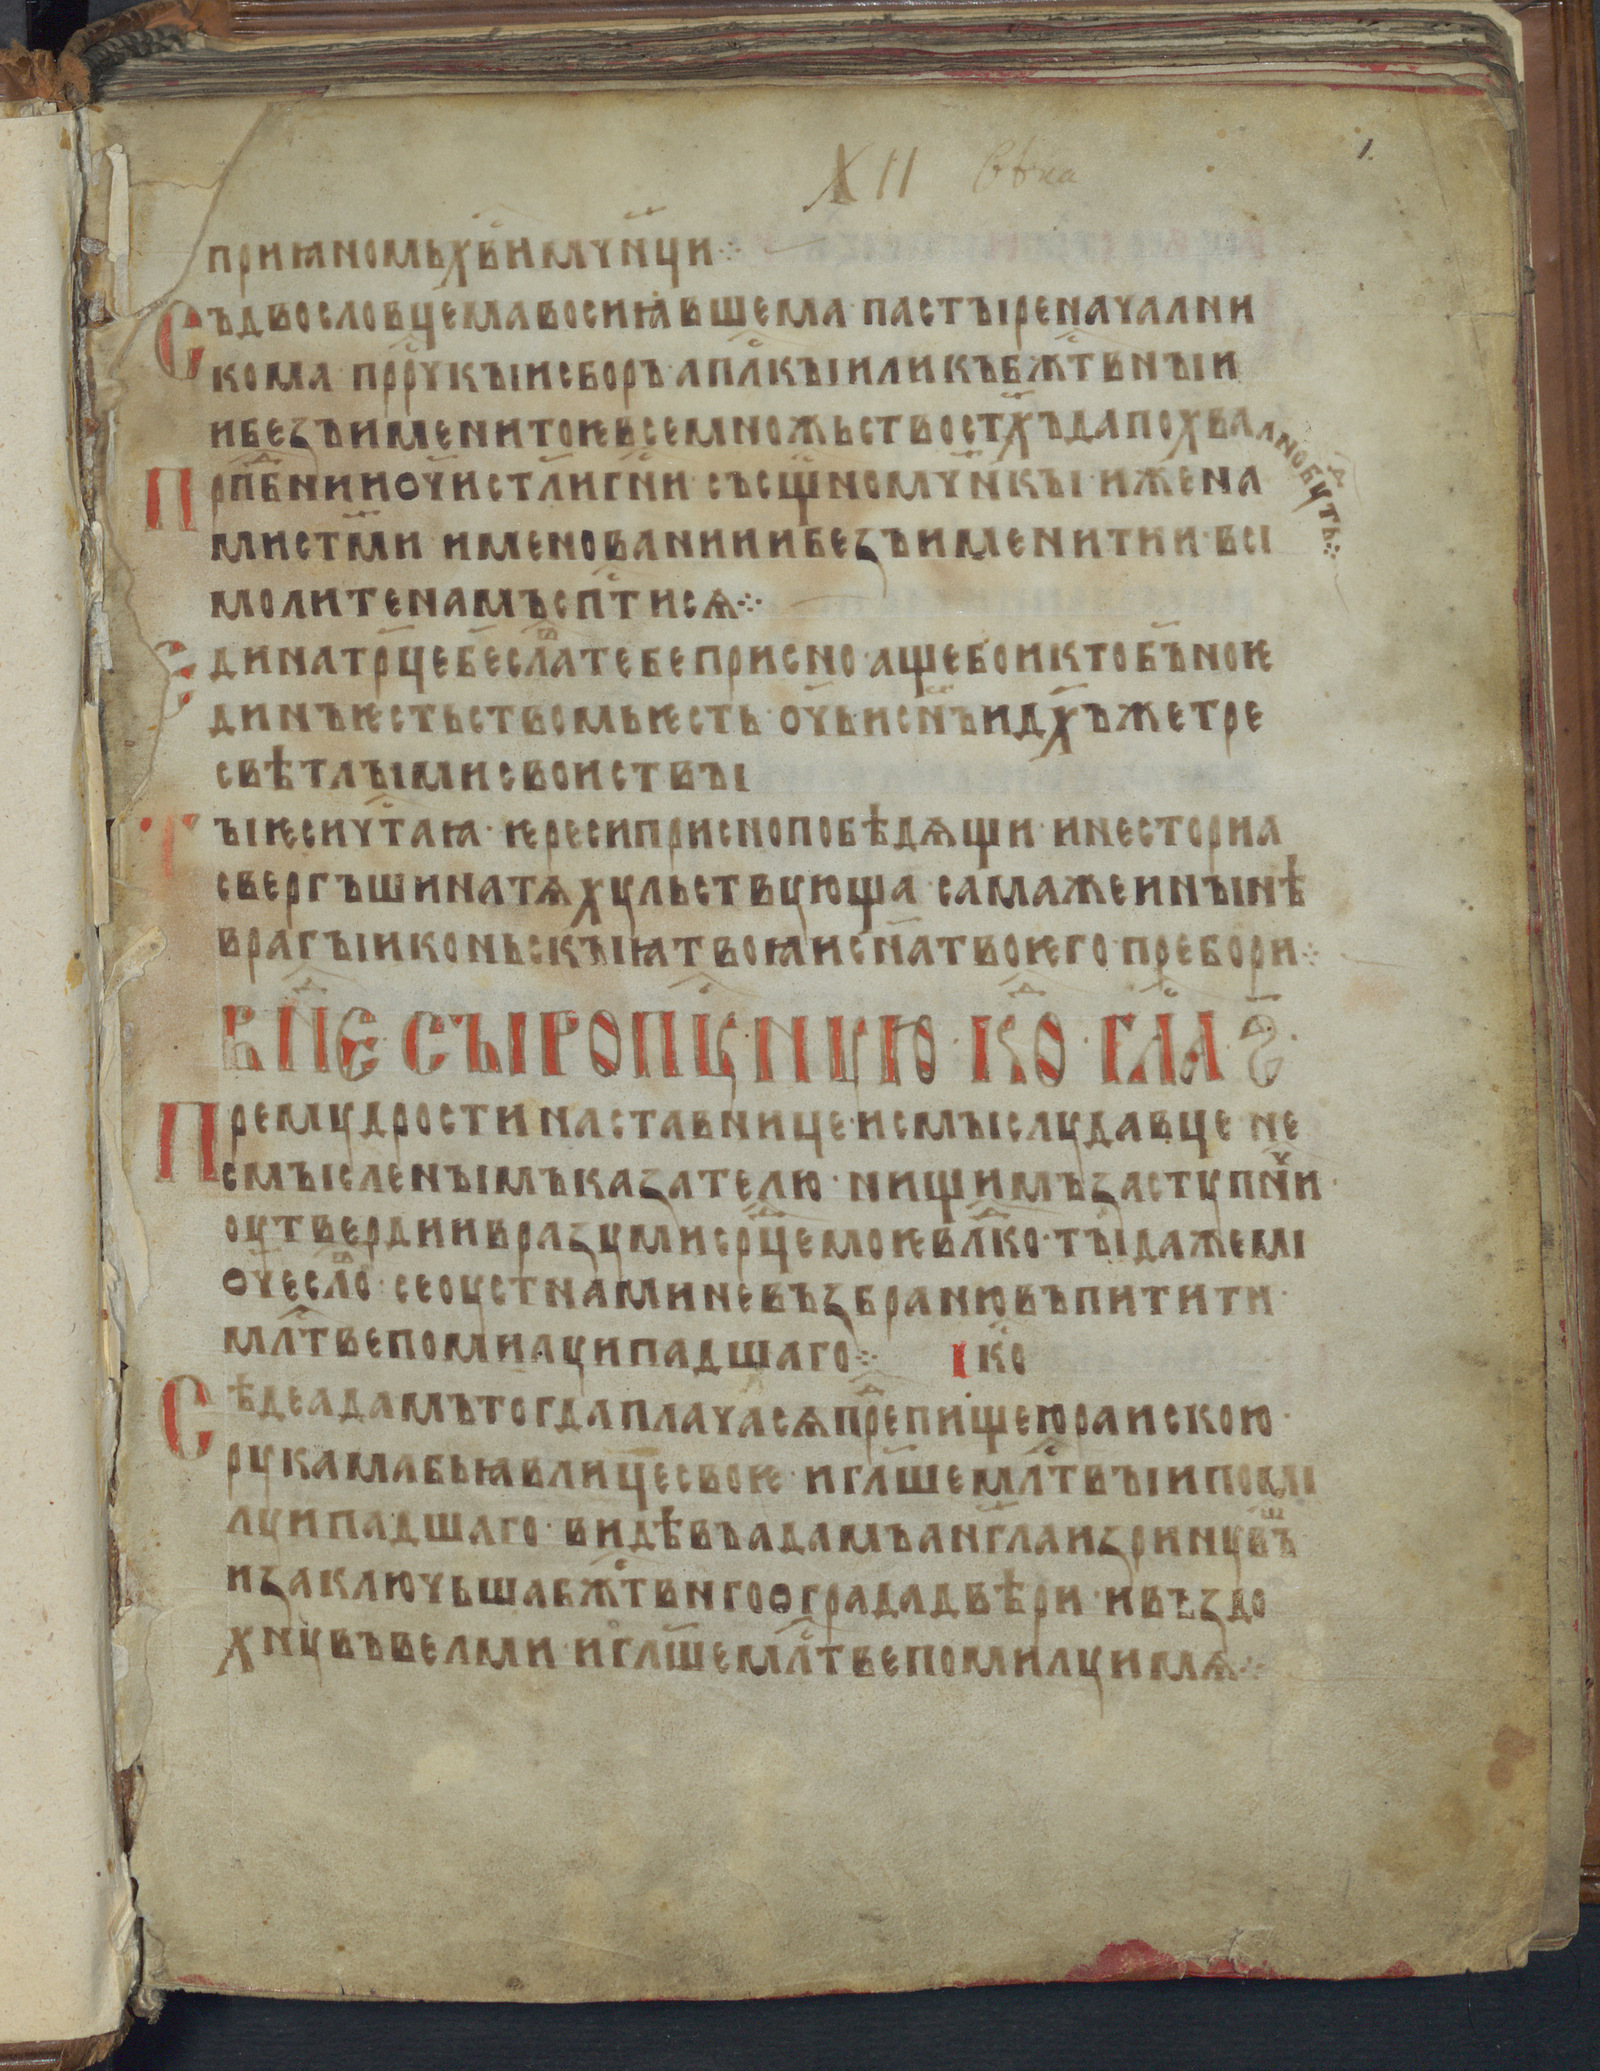 XII вѣка
1.
приꙗномь х҃ви мч҃нци ⁘
Съ двословцема восиꙗвшема · пастꙑреначални
кома · прⷪ҇рчкꙑи сборъ · апⷭ҇лкꙑи ликъ бжⷭ҇твнꙑи
и безъименитоѥ все множьство ст҃хъ да похвално бꙋдⷮть ⁘
Прпⷣбнии ѹ҃и ст҃лиг҃ни · съ сщ҃номч҃нкꙑ · и жена
ми ст҃ми именовании и безъименитии · вси
молите намъ сп҃тисѧ ⁘
Едина трⷪ҇це бе слⷡ҇а тебе присно · аще бо и кто б҃ъ но ѥ
динъ ѥстьствомь ѥсть · оц҃ь и сн҃ъ и дх҃ъ же тре
свѣтлꙑми своиствꙑ
Тꙑ ѥси чⷭ҇таꙗ · ѥреси присно побѣдѧщи · и несториа
свергъши на тѧ хꙋльствꙋюща · сама же и нꙑнѣ
врагꙑ иконьскꙑꙗ твоꙗ и сн҃а твоѥго пребори ⁘
В нⷣе сꙑропⷭ҇ꙋ · нꙋю · кⷣо · глⷭ҇а · ѕ҃ ·
Премꙋдрости наставниче · и смꙑслꙋ давче не
смꙑсленꙑмъ казателю · нищимъ застꙋпнчⷦ҇и ·
ѹтверди и вразꙋми срⷣце моѥ влⷣко · тꙑ даже ми
оч҃е слⷡ҇о · се ѹстнами не възбраню въпити ти ·
млⷭ҇тве помилꙋи падшаго ⁘ Ікⷪ҇
Сѣде адамъ тогда плачасѧ прⷣе пищею раискою ·
рꙋкама бьꙗ в лице своѥ · и гл҃ше млⷭ҇твꙑи поми
лꙋи падшаго · видѣвъ адамъ анг҃ла изринꙋвшⷲъ
и заключьша бжⷭ҇твнго ограда двѣри · и въздо
хнꙋвъ велми · и гл҃ше млⷭ҇тве помилꙋи мѧ ⁘